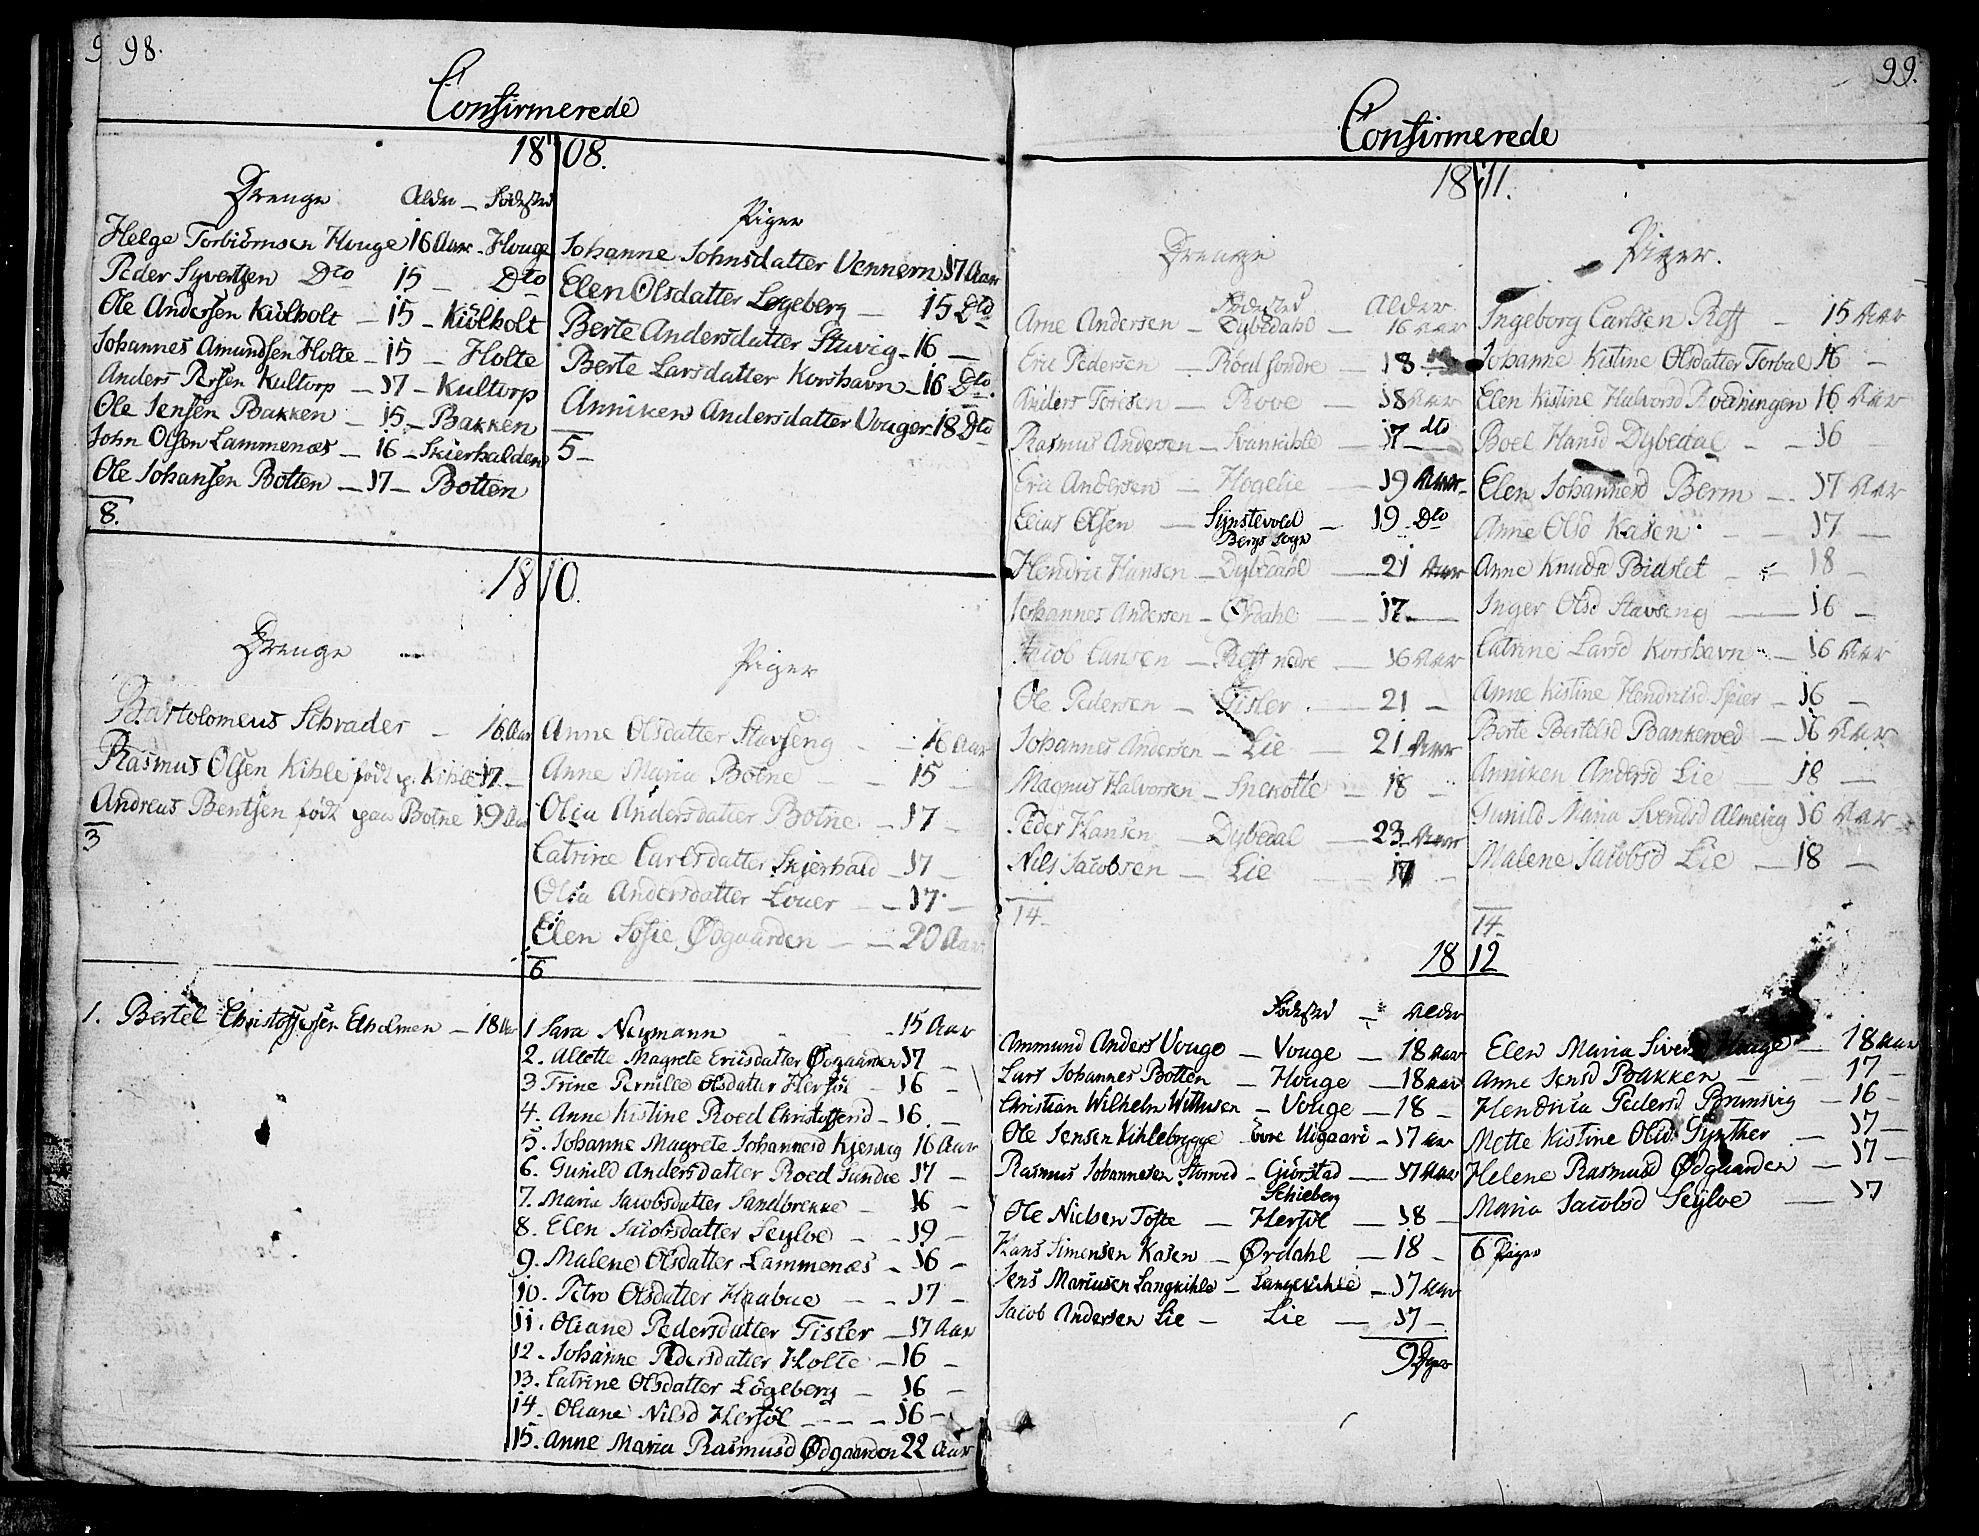 9 98.
Confirmerede
1808.
Drenge Alder – Fødested
Helge Torbiörnsen Houge 16 Aar – Houge
Peder Syvertsen Dto 15 – Dto
Ole Andersen Kiölholt – 15 – Kiölholt
Johannes Amundsen Holte – 15 – Holte
Anders Persen Kultorp – 17 – Kultorp
Ole Jensen Bakken – 15 – Bakken
John Olsen Lammenæs – 16 – Skierhalden
Ole Johansen Botten – 17 – Botten
8.
Piger
Johanne Johnsdatter Vennern 17 Aar
Elen Olsdatter Løgeberg – 15 Dto
Berte Andersdatter Stuvig – 16 –
Berte Larsdatter Korshavn – 16 Dto.
Anniken Andersdatter Vouger 18 Dto
5 –
1810.
Drenge
Bartolomeus Schrader – 16 Aar
Rasmus Olsen Kihle født p. Kihle 17 –
Andreas Bentsen født paa Botne 19 Aar
3
Piger
Anne Olsdatter Stavseng – 16 Aar
Anne Maria Botne – 15 –
Olia Andersdatter Botne – 17 –
Catrine Carlsdatter Skjerhald – 17 –
Olia Andersdatter Louer – 17 –
Elen Sofie Ødgaarden – 20 Aar
6
1. Bertel Christoffersen Eholmen – 18 Aar
1 Sara Neumann – 15 Aar
2. Allette Magrete Ericsdatter Ødgaarden 17 –
3 Trine Pernille Olsdatter Hersøl – 16 –
4. Anne Kistine Roed Christofferd – 16. –
5. Johanne Magrete Johannesd Kjenvig 16 Aar
6. Gunild Andersdatter Roed Sundre 17 –
7. Maria Jacobsdatter Sandbrekke – 16 –
8. Elen Jacobsdatter Seyløe – 19 –
9. Malene Olsdatter Lammenæs – 16 –
10. Petro Olsdatter Haabue – 17 –
11. Oliane Pedersdatter Tisler – 17 Aar
12. Johanne Pedersdatter Holte – 16 –
13. Catrine Olsdatter Løgeberg – 16 –
14. Oliane Nilsd Hersøl – 16 –
15. Anne Maria Rasmusd Ødgaarden 22 Aar
99.
Confirmerede
1811.
Drenge
Fødested Alder
Arne Andersen – Dybedahl – 16 Aar
Eric Pedersen – Röed søndre – 18
Anders Toresen – Rove – 18 Aar
Rasmus Andersen – Svankihle – 17 dto
Eric Andersen – Hogelie – 19 Aar
Elias Olsen – Synstevold – 19 Dto
Bergs Sogn
Hendric Hansen – Dybedahl – 21 Aar
Johannes Andersen – Ørdahl – 17 –
Jacob Larsen – Reff nedre – 16 Aar
Ole Pedersen – Tisler – 21 –
Johannes Andersen – Lie – 21 Aar
Magnus Halvorsen – Snekotte – 18 –
Peder Hansen – Dybedal – 23 Aar
Nils Jacobsen – Lie – 17 –
14 –
Piger.
Ingeborg Carlsen Reff – 15 Aar
Johanne Kistine Olsdatter Torbal 16 –
Elen Kistine Halvorsd Rødningen 16 Aar
Boel Hansd Dybedal – 16
Elen Johannesd Berm – 17 Aar
Anne Olsd Kasen – 17 –
Anne Knudsd Bidslet – 18 –
Inger Olsd Stavseng – 16 –
Catrine Larsd Korshavn – 16 Aar
Anne Kistine Hendricsd Spier – 16 –
Berte Bertelsd Bankerød – 16 Aar
Anniken Andersd Lie – 18 –
Gunild Maria Svendsd Almevig 16 Aar
Malene Jacobsd Lie – 18 –
14 –
1812
Fødested – Alder
Ammund Anders Vouge – Vouge – 18 Aar
Lars Johannes Botten – Houge – 18 Aar
Christian Wilhelm Withusen – Vouge – 18 –
Ole Jensen Kihlebrygge övre Uigaard – 17 Aar
Rasmus Johannesen – Giörstad – 17 Aar
Schieberg
Ole Nielsen Tofte – Hersøl – 18 –
Hans Simensen Kasen – Ørdahl – 18 –
Jens Mariusen Langkihle – Langekihle – 17 Aar
Jacob Andersen Lie – Lie – 17 –
9
Elen Maria – 18 Aar
Anne Jensd Bakken – 17 –
Hendrica Pedersd Brunsvig – 16 –
Mette Kistine Olsd Gynther – 17 –
Helene Rasmusd Ødgaarden – 17 –
Maria Jacobsd Seyløe – 17
6 Piger